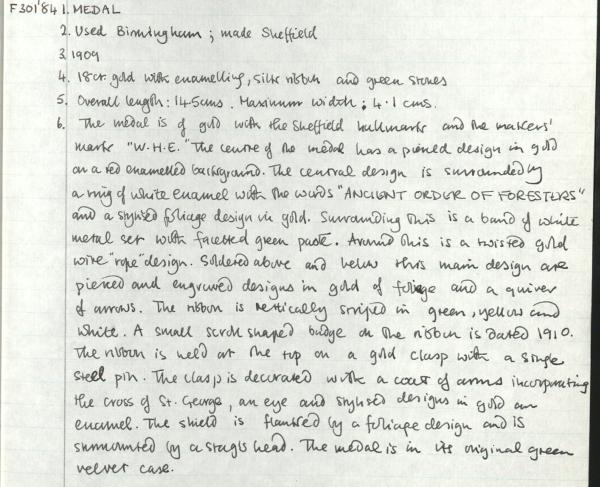 F301'84 1. MEDAL
2. Used Birmingham ; made Sheffield
3. 1909
4. 18ct. gold with enamelling, silk ribbon and green stones
5. Overall length : 14.5cms. Maximum width : 4.1 cms.
6. The medal is of gold with the Sheffield hallmarks and the makers'
mark "W.H.E." The centre of the medal has a pierced design in gold
on a red enamelled background. The central design is surrounded by
a ring of white enamel with the words "ANCIENT ORDER OF FORESTERS"
and a stylised foliage design in gold. Surrounding this is a band of white
metal set with facetted green paste. Around this is a twisted gold
wire "rope" design. Soldered above and below this main design are
pierced and engraved designs in gold of foliage and a quiver
of arrows. The ribbon is vertically striped in green, yellow and
white. A small scroll shaped badge on the ribbon is dated 1910.
The ribbon is held at the top on a gold clasp with a single
steel pin. The clasp is decorated with a coat of arms incorporating
the cross of St. George, an eye and stylised designs in gold on
enamel. The shield is flanked by a foliage design and is
surmounted by a stag's head. The medal is in its original green
velvet case.